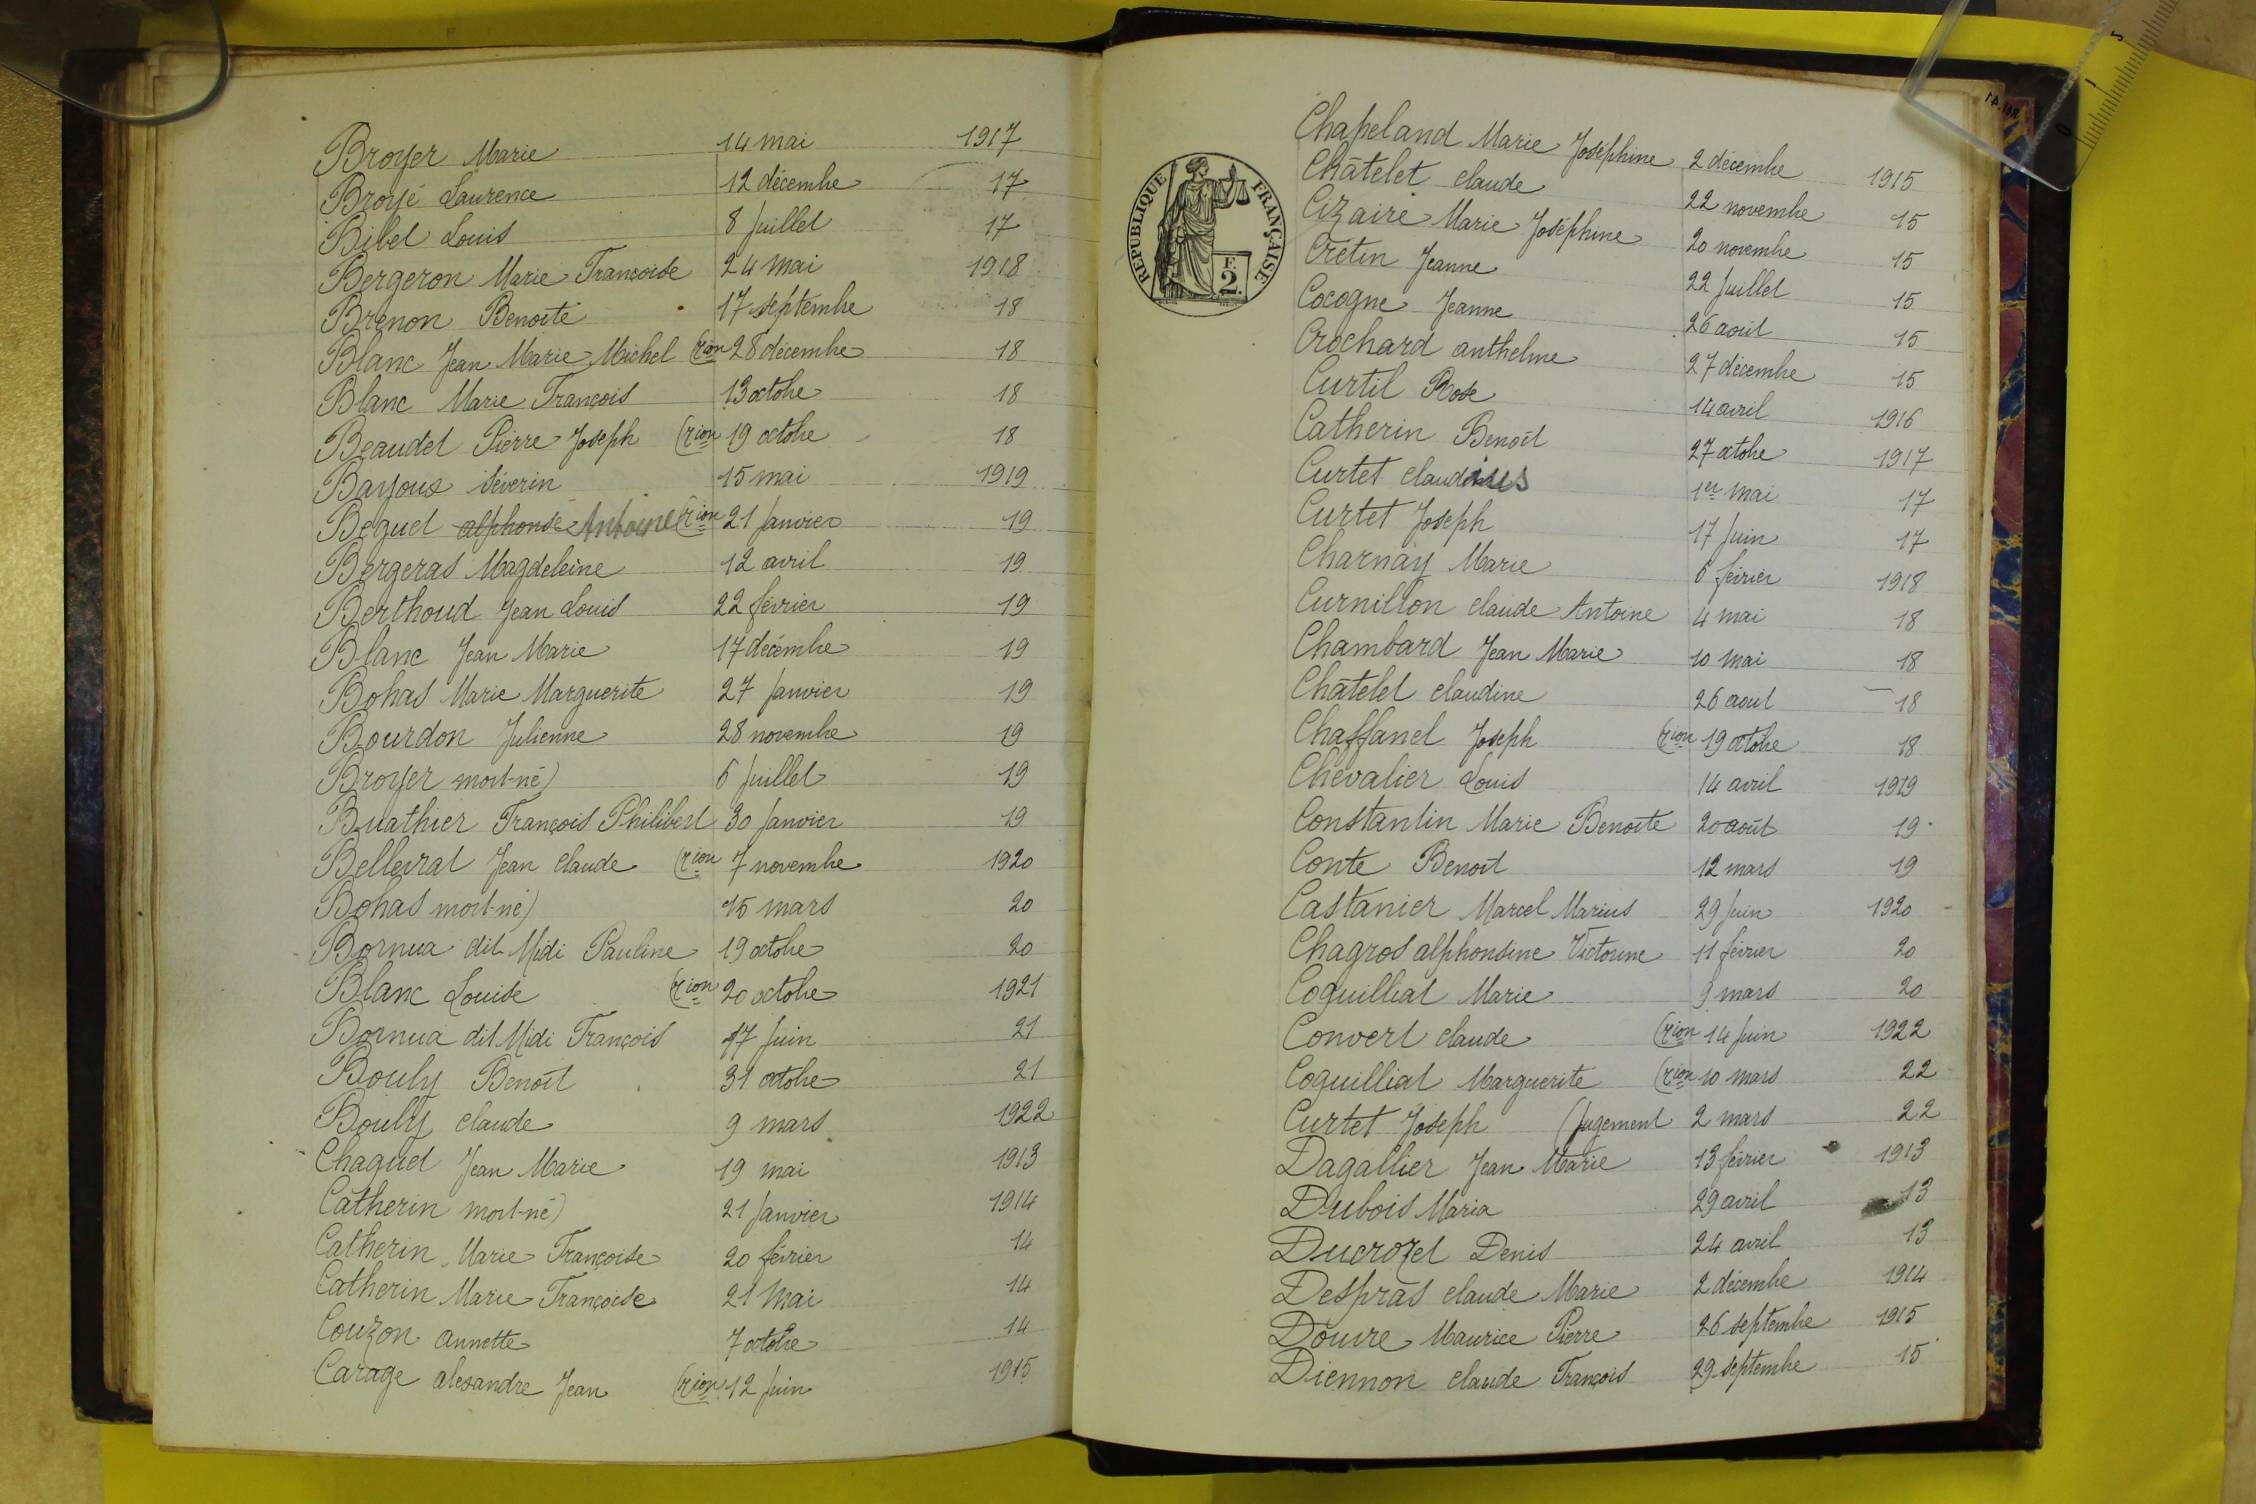 Broyer Marie 14 mai 1917
Broyé Laurence 12 décembre 17
Bibet Louis 8 Juillet 17
Bergeron Marie Françoise 24 mai 1918
Brenon Benoite 17 septembre 18
Blanc Jean Marie Michel (rion 28 décembre 18
Blanc Marie François 13 octobre 18
Beaudet Pierre Joseph (rion 19 octobre 18
Bayoux Séverin 15 mai 1919
Beguet alphonse Antoine (rion 21 Janvier 19
Bergeras Magdeleine 12 avril 19
Berthoud Jean Louis 22 février 19
Blanc Jean Marie 17 décembre 19
Bohas Marie Marguerite 27 Janvier 19
Bourdon Julienne 28 novembre 19
Broyer mort-né) 6 Juillet 19
Buathier François Philibert 30 Janvier 19
Bellevrat Jean Claude (rion 7 novembre 1920
Bohas mort-né) 15 mars 20
Bornua dit Midi Pauline 19 octobre 20
Blanc Louise (rion 20 octobre 1921
Bornua dit Midi François 17 Juin 21
Bouly Benoît 31 octobre 21
Bouly claude 9 mars 1922
Chaguet Jean Marie 19 mai 1913
Catherin mort-né) 21 Janvier 1914
Catherin Marie Françoise 20 février 14
Catherin Marie Françoise 21 Mai 14
Couzon annette 7 octobre 14
Carage alexandre Jean (rion 12 Juin 1915
RÉPUBLIQUE FRANÇAISE
F.
2.
Chapeland Marie Joséphine 2 décembre 1915
Châtelet claude 22 novembre 15
Cizaire Marie Joséphine 20 novembre 15
Cretin Jeanne 22 Juillet 15
Cocogne Jeanne 26 août 15
Crochard anthelme 27 décembre 15
Curtil Rose 14 avril 1916
Catherin Benoît 27 octobre 1917
Curtet claudius 1er Mai 17
Curtet Joseph 17 Juin 17
Charnay Marie 6 février 1918
Curnillon claude Antoine 4 mai 18
Chambard Jean Marie 10 mai 18
Châtelet claudine 26 aout 18
Chaffanel Joseph (rion 19 octobre 18
Chevalier Louis 14 avril 1919
Constantin Marie Benoite 20 août 19
Conte Benoit 12 mars 19
Castanier Marcel Marius 29 Juin 1920
Chagros alphonsine Victorine 11 février 20
Coquilliat Marie 9 mars 20
Convert claude (rion 14 Juin 1922
Coquilliat Marguerite (rion 10 mars 22
Curtet Joseph (Jugement 2 mars 22
Dagallier Jean Marie 13 février 1913
Dubois Maria 29 avril 13
Ducrozet Denis 24 avril 13
Despras claude Marie 2 décembre 1914
Douvre Maurice Pierre 26 septembre 1915
Diennon claude François 29 septembre 15